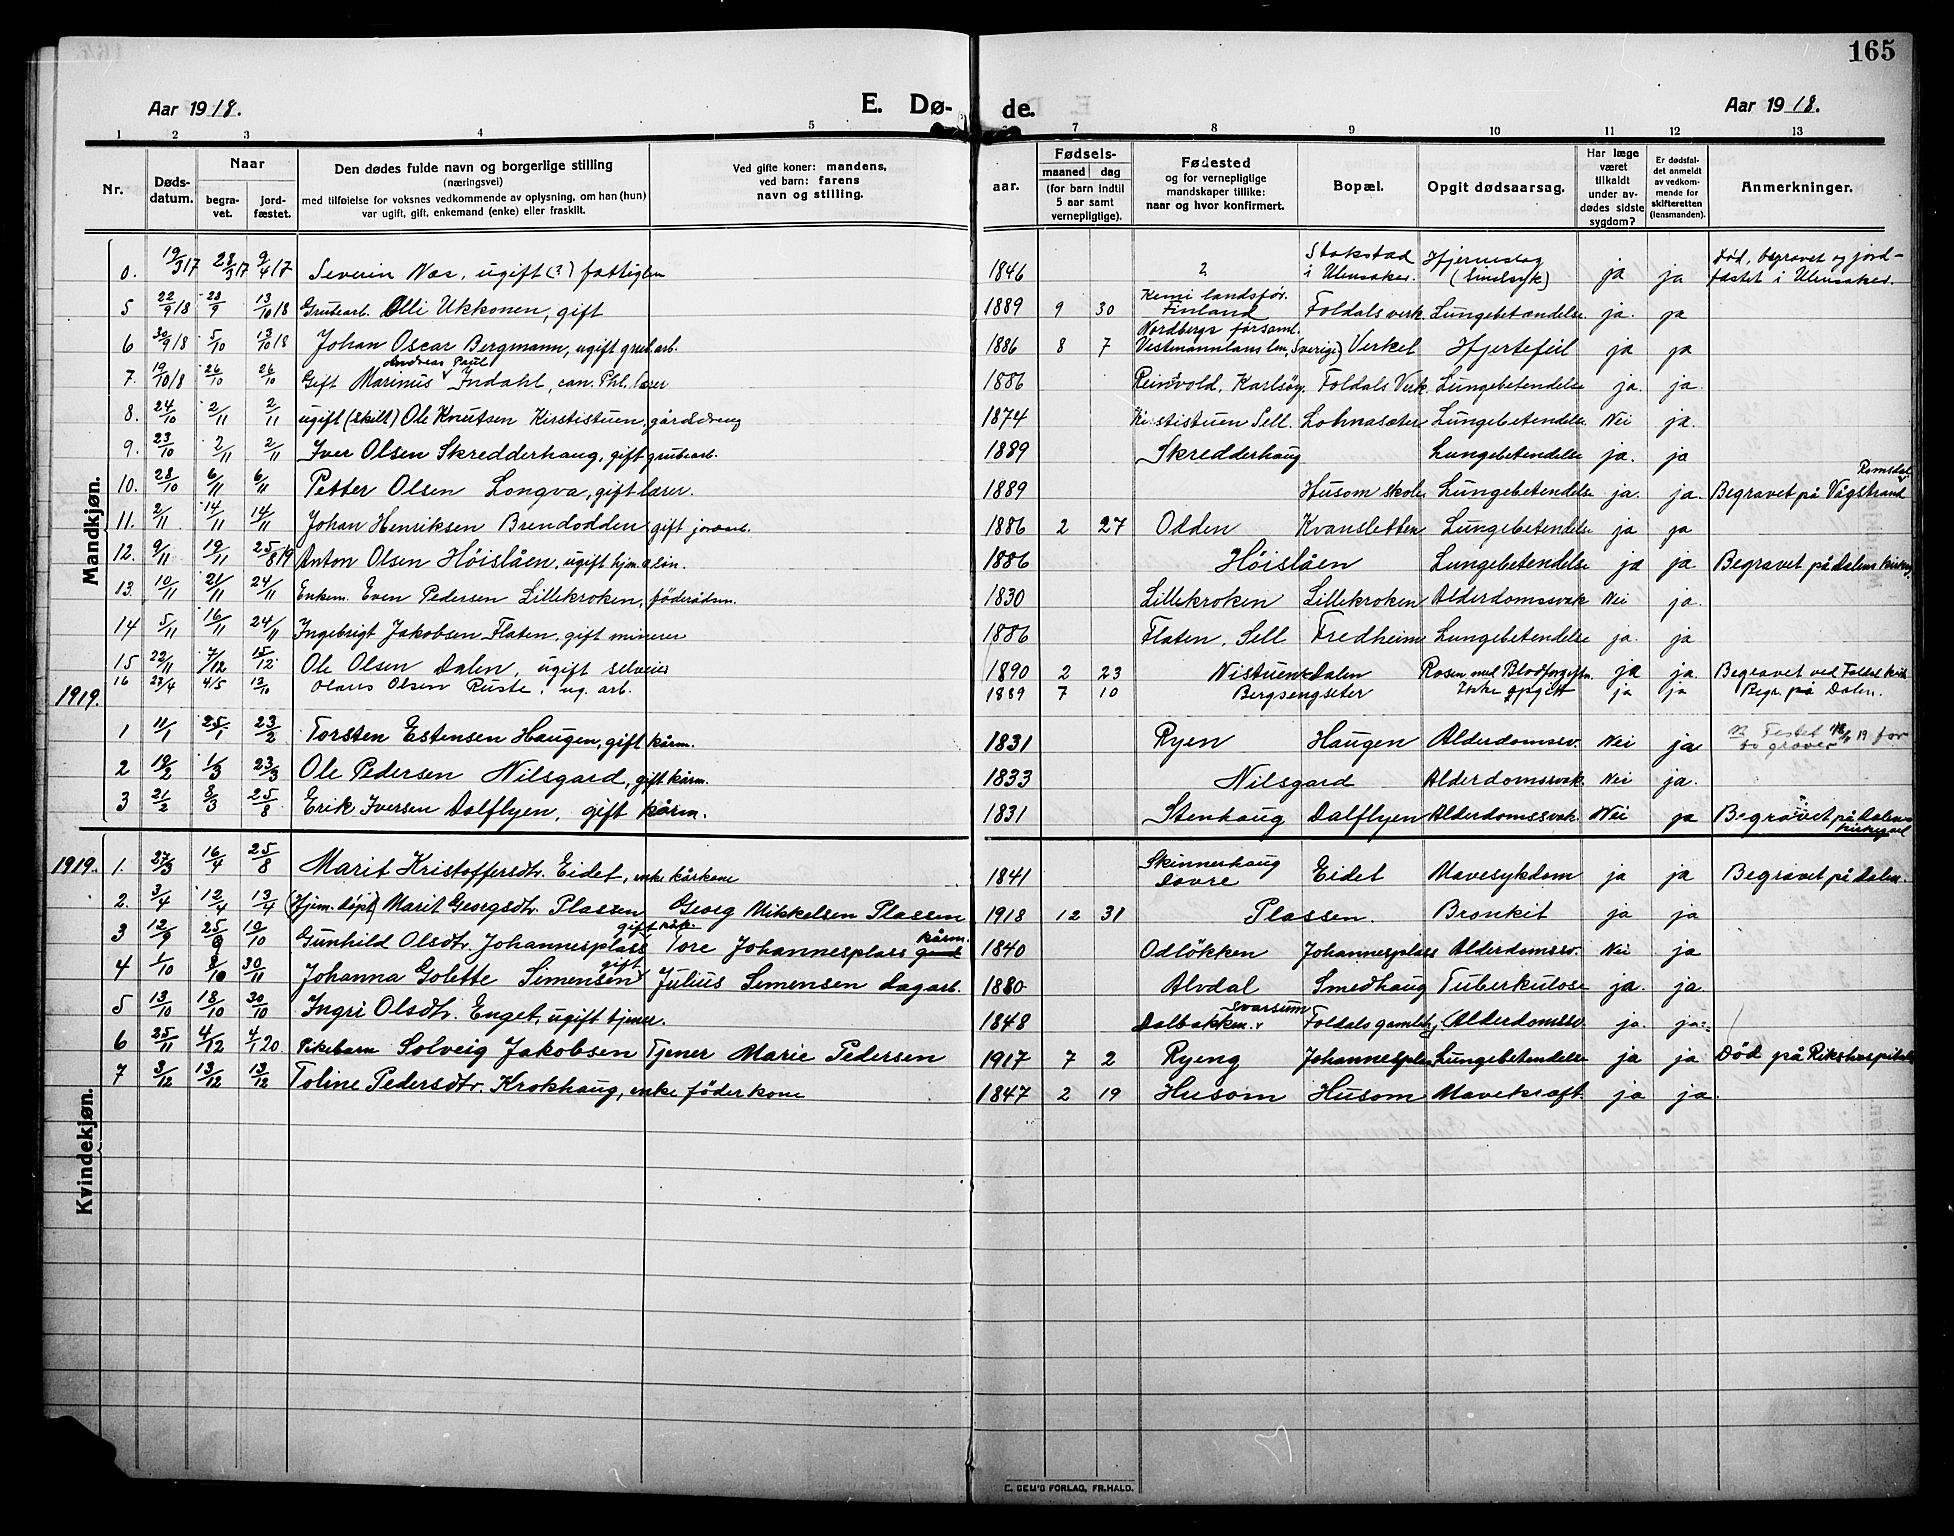 165
Aar 1918. E. Dø- de. Aar 1918.
1 2 3 4 5 7 8 9 10 11 12 13
Nr. Døds-datum. Naar begra-vet. jord-fæstet. Den dødes fulde navn og borgerlige stilling (næringsvei) med tilføielse for voksnes vedkommende av oplysning, om han (hun) var ugift, gift, enkemand (enke) eller fraskilt. Ved gifte koner: mandens, ved barn: farens navn og stilling. aar. Fødsels- maaned dag (for barn indtil 5 aar samt vernepligtige). Fødested og for vernepligtige mandskaper tillike: naar og hvor konfirmert. Bopæl. Opgit dødsaarsag. Har læge været tilkaldt under av-dødes sidste sygdom? Er dødsfal-det anmeldt av vedkom-mende for skifteretten (lensmanden). Anmerkninger.
Mandkjøn.
0. 19/3 17 28/3 17 9/4 17 Severin Næs, ugift (?) fattiglem 1846 ? Stokstad i Ulensaker. Hjerneslag (Sindssyk) ja ja Død, begravet og jord-fæstet i Ulensaker.
5 22/9 18 28/9 13/10 18 Grubearb. Olli Ukkonen, gift 1889 9 30 Kemi landsför. Finland Foldals verk Lungebetændelse ja. ja
6 30/9 18 5/10 13/10 18 Johan Oscar Bergmann, ugift grub.arb. 1886 8 7 Nordbergs församl. Vestmannlans län, (Sverige) Verket Hjertefeil ja ja
7. 19/10 18 26/10 26/10 Gift Marinus Andreas Paul Indahl, can. Phl. lærer 1886 Reinsvold, Karlsöy. Foldals Verk Lungebetendelse ja. ja.
8. 24/10 2/11 2/11 ugift (skilt) Ole Knutsen Kirstistuen, gårddreng 1874 Kirstistuen Sell. Lohnasæter Lungebetendelse Nei ja.
9. 23/10 2/11 2/11 Iver Olsen Skredderhaug, gift grubearb. 1889 Skredderhaug Lungebetendelse ja. ja
10. 28/10 6/11 6/11 Petter Olsen Longva, gift lærer. 1889 Husom skole Lungebetendelse ja. ja. Begravet på Vågstrand Romsdal
11. 2/11 14/11 14/11 Johan Henriksen Brendodden gift jordarb. 1886 2 27 Odden Kvansletten Lungebetendelse ja ja
12. 9/11 19/11 25/8 19 Anton Olsen Höislåen, ugift hjm. a lön. 1886 Höislåen Lungebetendelse ja ja Begravet på Dalens kirkeg.
13. 10/11 21/11 24/11 Enkem. Even Pedersen Lillekroken, föderådsm. 1830 Lillekroken Lillekroken Alderdomssvak Nei ja.
14 5/11 16/11 24/11 Ingebrigt Jakobsen Flaten, gift minerer 1886 Flaten, Sell Fredheim Lungebetendelse ja. ja
15 22/11 7/12 15/12 Ole Olsen Dalen, ugift selveier 1890 2 23 Nistuen Dalen Rosen med Blodforgiftn. ja ja. Begravet ved Foldal kirk
16 23/4 4/5 12/10 Olaus Olsen Ruste, ug. arb. 1889 7 10 Bergsengseter Ikke opgitt ja ja Begr. på Dalen.
1919.
1 11/1 25/1 23/2 Torsten Estensen Haugen, gift kårm. 1831 Ryen Haugen Alderdomssv. Nei ja Festet 19 for to graver
2 19/2 1/3 23/3 Ole Pedersen Nilsgard, gift kårm. 1833 Nilsgard Alderdomssvak Nei ja.
3 21/2 8/3 25/8 Erik Iversen Dalflyen, gift kårm. 1831 Stenhaug Dalflyen Alderdomssvak. Nei ja Begravet på Dalens kirkegård
Kvindekjøn.
1919. 1. 27/3 16/4 25/8 Marit Kristoffersdtr. Eidet, enke kårkone 1841 Skinnerhaug Dovre Eidet Mavesykdom ja ja Begravet på Dalen.
2. 3/4 12/4 13/4 (Hjem. döpt) Marit Georgsdtr. Plassen Georg Mikkelsen Plassen 1918 12 31 Plassen Bronkit ja ja
3 12/9 25/9 19/10 Gunhild Olsdtr. Johannesplass gift Tore Johannesplass kårm. 1840 Odlökken Johannesplass Alderdomssv. Nei ja
4 1/10 8/10 30/11 Johanna Golette Simensen gift Julius Simensen dagarb. 1880 Alvdal Smedhaug Tuberkulose ja. ja.
5 13/10 18/10 30/10 Ingri Olsdtr. Enget, ugift tjener. 1848 Dalbakken. Svarsum Foldals gamlehj. Alderdomssv. ja. ja.
6 25/11 4/12 4/1 20 Pikebarn Solveig Jakobsen Tjener Marie Pedersen 1917 7 2 Ryeng Johannesplass Lungebetendelse ja ja Död på Rikshospitalet
7 3/12 13/12 13/12 Toline Pedersdtr. Krokhaug, enke föderkone 1847 2 19 Husom Husom Mavekræft. ja ja.
C. GEM'S FORLAG, FR.HALD.